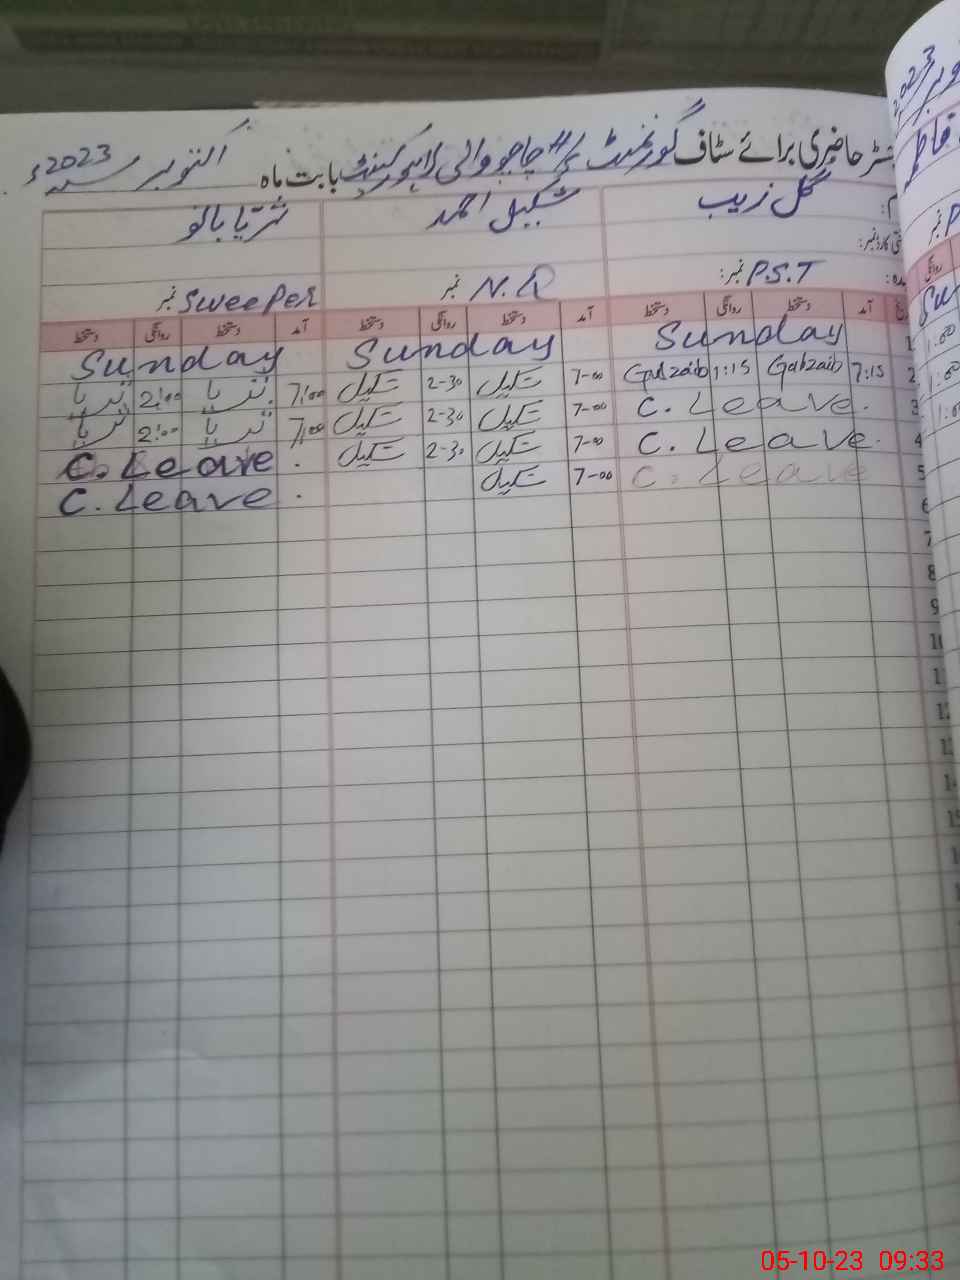 سٹر حاضری برائے سٹاف گورنمنٹ چاچو والی لاہور کینٹ بابت ماہ اکتوبر سنہ 2023ء
گل زیب شکیل احمد ثریا بانو
نمبر: P.S.T نمبر N.Q نمبر Sweeper
آمد دستخط روانگی دستخط آمد دستخط روانگی دستخط آمد دستخط روانگی دستخط
1 Sunday Sunday Sunday
2 7:15 Gulzaib 1:15 Gulzaib 7-00 شکیل 2-30 شکیل 7:00 ثریا 2:00 ثریا
3 C. Leave. 7-00 شکیل 2-30 شکیل 7:00 ثریا 2:00 ثریا
4 C. Leave. 7-00 شکیل 2-30 شکیل C. Leave.
5 C. Leave 7-00 شکیل C. Leave.
6
7
8
9
10
11
12
13
14
15
2023
فاطمہ
روانگی
Su
1:00
1:00
05-10-23 09:33